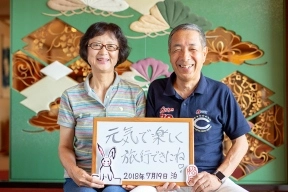 元気で楽しく
旅行できたね
2018年7月19日 泊